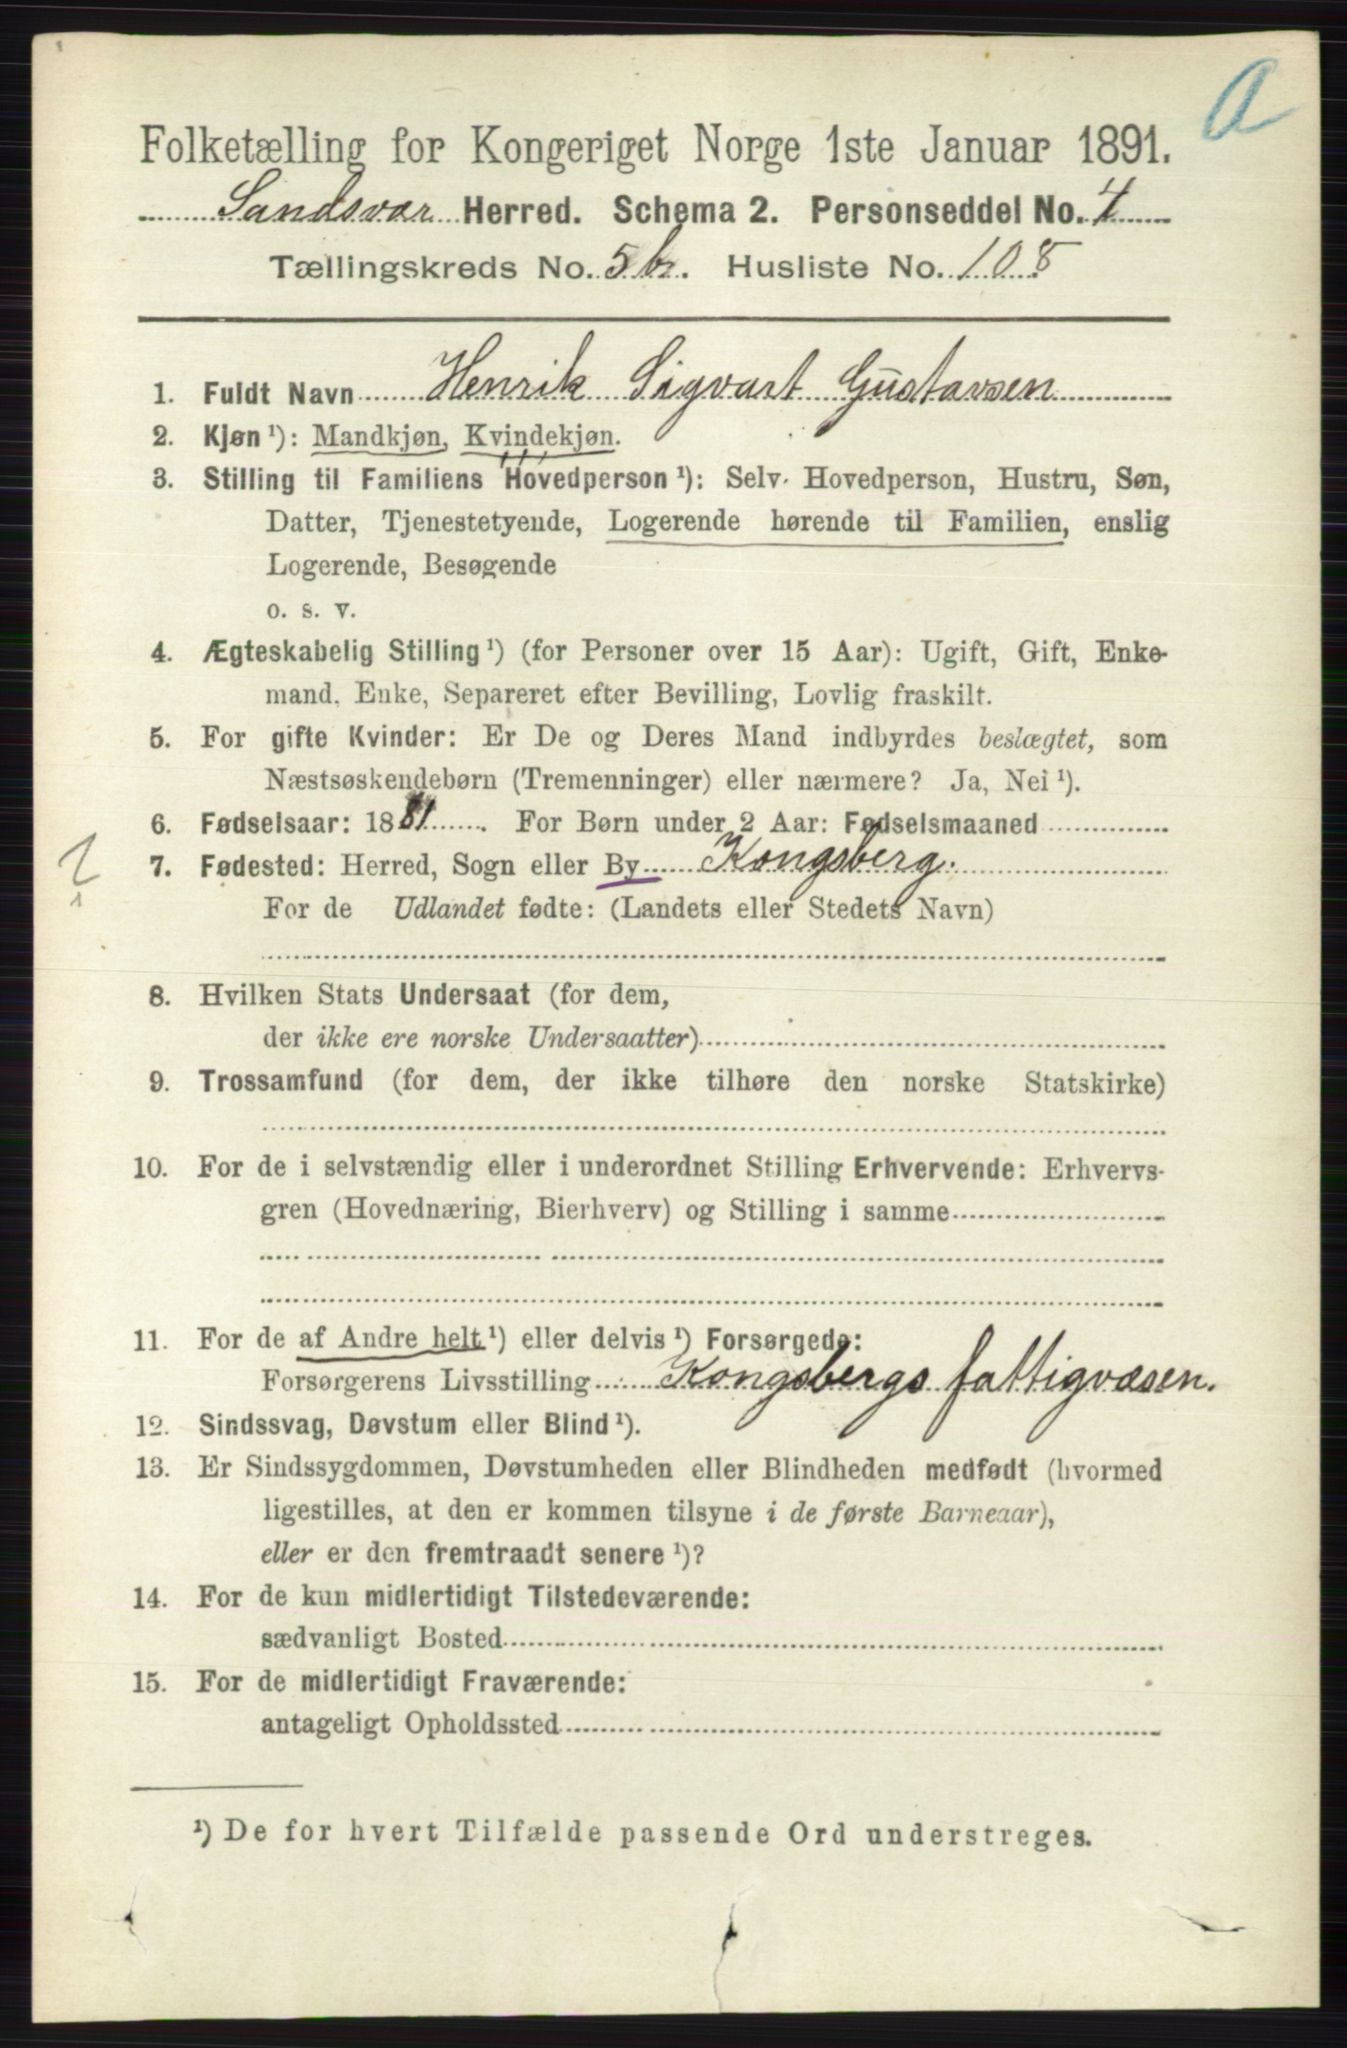 a
Folketælling for Kongeriget Norge 1ste Januar 1891.
Sandsvær Herred. Schema 2. Personseddel No. 4
Tællingskreds No. 5b. Husliste No. 108
1. Fuldt Navn Henrik Sigvart Gustavsen
2. Kjøn ¹): Mandkjøn, Kvindekjøn.
3. Stilling til Familiens Hovedperson ¹): Selv Hovedperson, Hustru, Søn,
Datter, Tjenestetyende, Logerende hørende til Familien, enslig
Logerende, Besøgende
o. s. v.
4. Ægteskabelig Stilling ¹) (for Personer over 15 Aar): Ugift, Gift, Enke-
mand, Enke, Separeret efter Bevilling, Lovlig fraskilt.
5. For gifte Kvinder: Er De og Deres Mand indbyrdes beslægtet, som
Næstsøskendebørn (Tremenninger) eller nærmere? Ja, Nei ¹).
6. Fødselsaar: 1881. For Børn under 2 Aar: Fødselsmaaned
7. Fødested: Herred, Sogn eller By Kongsberg.
For de Udlandet fødte: (Landets eller Stedets Navn)
8. Hvilken Stats Undersaat (for dem,
der ikke ere norske Undersaatter)
9. Trossamfund (for dem, der ikke tilhøre den norske Statskirke)
10. For de i selvstændig eller i underordnet Stilling Erhvervende: Erhvervs-
gren (Hovednæring, Bierhverv) og Stilling i samme
11. For de af Andre helt ¹) eller delvis ¹) Forsørgede:
Forsørgerens Livsstilling Kongsbergs fattigvæsen.
12. Sindssvag, Døvstum eller Blind ¹).
13. Er Sindssygdommen, Døvstumheden eller Blindheden medfødt (hvormed
ligestilles, at den er kommen tilsyne i de første Barneaar),
eller er den fremtraadt senere ¹)?
14. For de kun midlertidigt Tilstedeværende:
sædvanligt Bosted
15. For de midlertidigt Fraværende:
antageligt Opholdssted
¹) De for hvert Tilfælde passende Ord understreges.